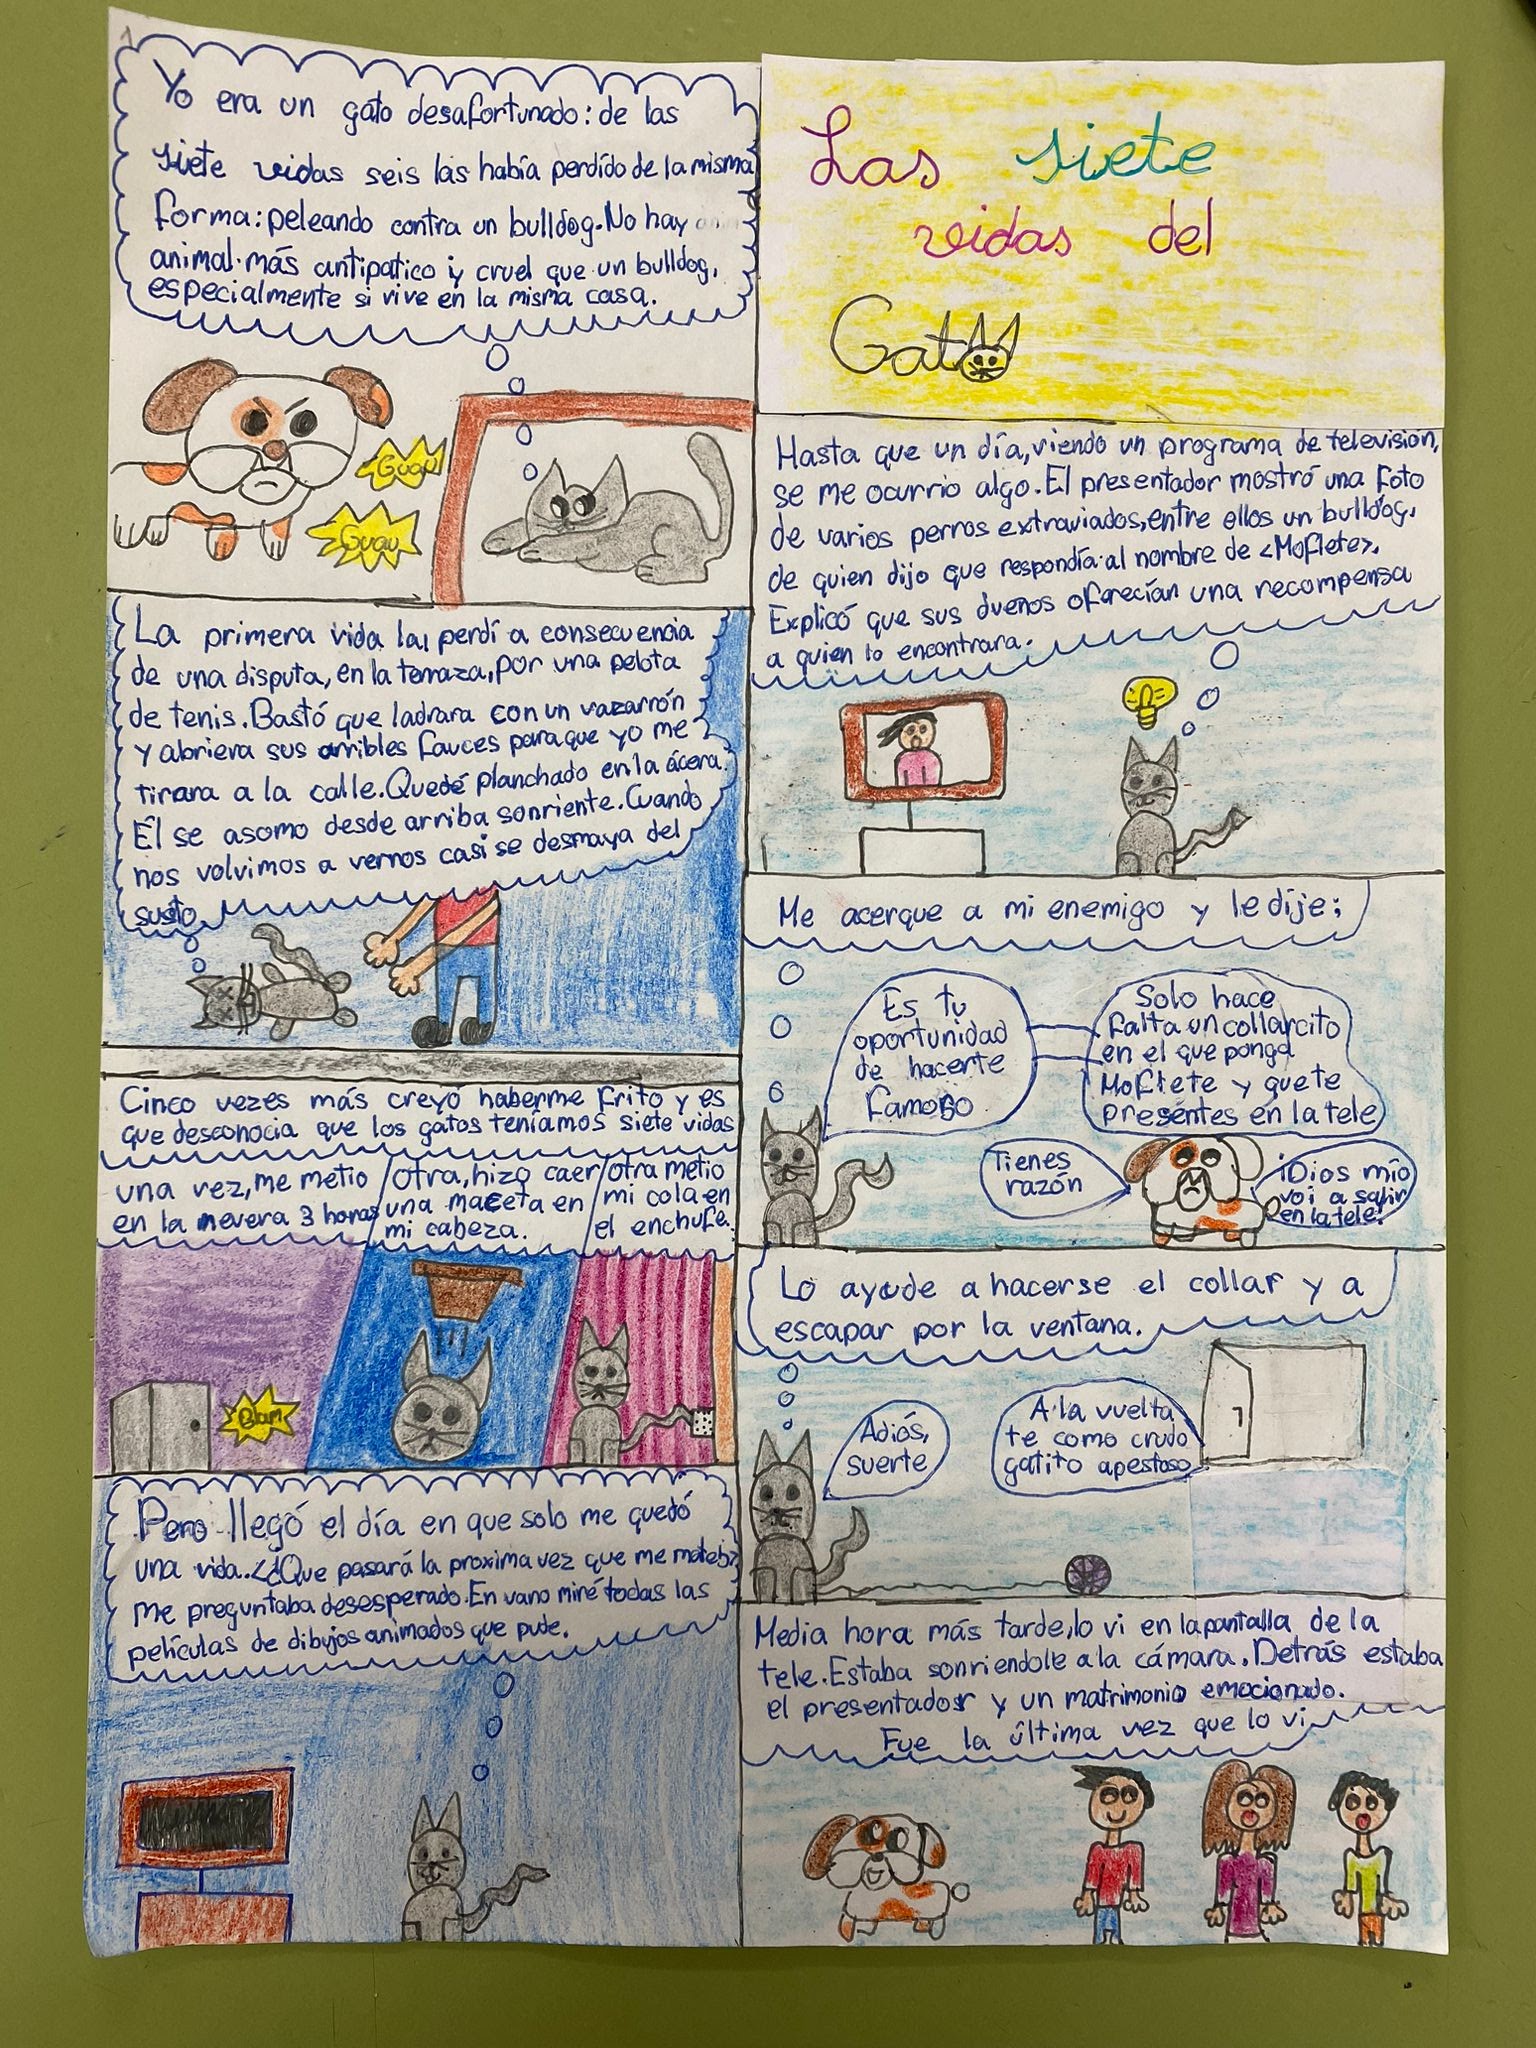 Las siete
vidas del
Gato
Yo era un gato desafortunado: de las
siete vidas seis las había perdido de la misma
forma: peleando contra un bulldog. No hay
animal más antipatico y cruel que un bulldog,
especialmente si vive en la misma casa.
Guau
Guau
La primera vida la perdí a consecuencia
de una disputa, en la terraza, por una pelota
de tenis. Bastó que ladrara con un vozarrón
y abriera sus orribles fauces para que yo me
tirara a la calle. Quedé planchado en la ácera.
Él se asomo desde arriba sonriente. Cuando
nos volvimos a vernos casi se desmaya del
susto.
Cinco vezes más creyó haberme frito y es
que desconocia que los gatos teníamos siete vidas
una vez, me metio
en la nevera 3 horas
otra, hizo caer
una maceta en
mi cabeza.
otra metio
mi cola en
el enchufe.
Blam
Pero llegó el día en que solo me quedó
una vida. <¿Que pasará la proxima vez que me mate?>
me preguntaba desesperado. En vano miré todas las
películas de dibujos animados que pude.
Hasta que un día, viendo un programa de televisión,
se me ocurrio algo. El presentador mostró una foto
de varios perros extraviados, entre ellos un bulldog,
de quien dijo que respondía al nombre de <Moflete>.
Explicó que sus duenos ofrecían una recompensa
a quien lo encontrara.
Me acerque a mi enemigo y le dije:
Es tu
oportunidad
de hacerte
famoso
Solo hace
falta un collarcito
en el que ponga
Moflete y quete
presentes en la tele
Tienes
razón
¡Dios mío
voi a salir
en la tele!
Lo ayude a hacerse el collar y a
escapar por la ventana.
Adiós,
suerte
A la vuelta
te como crudo
gatito apestoso
Media hora más tarde, lo vi en la pantalla de la
tele. Estaba sonriendole a la cámara. Detrás estaba
el presentador y un matrimonio emocionado.
Fue la última vez que lo vi.